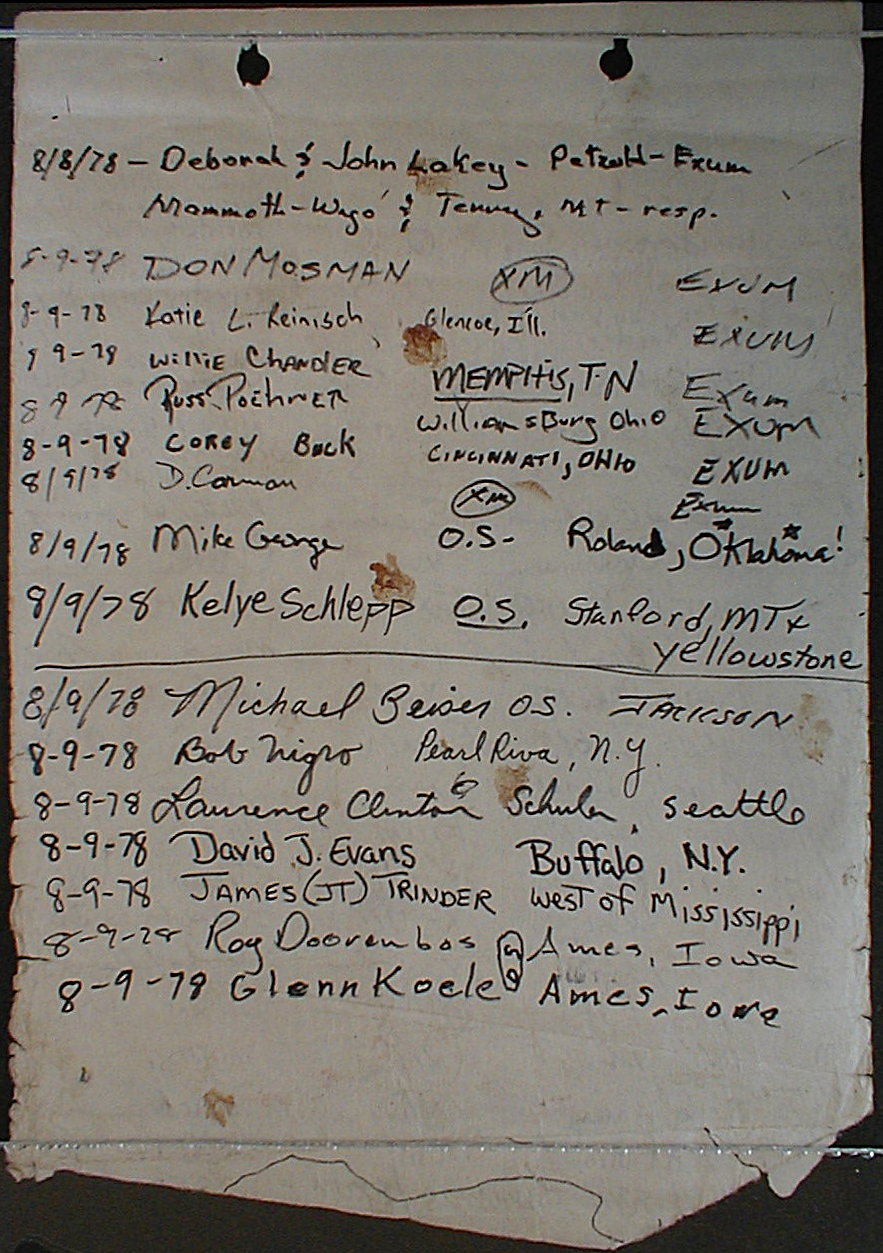 8/8/78 - Deborah & John Lakey - Petzoldt-Exum
Mammoth-Wyo & Tenney, MT - resp.
8-9-78 DON MOSMAN XM EXUM
8-9-78 Katie L. Reinisch Glencoe, Ill. EXUM
8 9-78 WILLIE CHANDLER MEMPHIS, TN Exum
8 9 78 Russ Poehner Williamsburg Ohio EXUM
8-9-78 COREY Buck CINCINNATI, OHIO EXUM
8/9/78 D. Corman XM Exum
8/9/78 Mike George O.S- Roland, Oklahoma!
8/9/78 Kelye Schlepp O.S. Stanford, MT x
yellowstone
8/9/78 Michael Beiser O.S. JACKSON
8-9-78 Bob Nigro Pearl River, N.Y.
8-9-78 Laurence Clinton Schuler, Seattle
8-9-78 David J. Evans Buffalo, N.Y.
8-9-78 JAMES (JT) TRINDER west of Mississippi
8-9-78 Roy Doorenbos Ames, Iowa
8-9-78 Glenn Koele Ames, Iowa